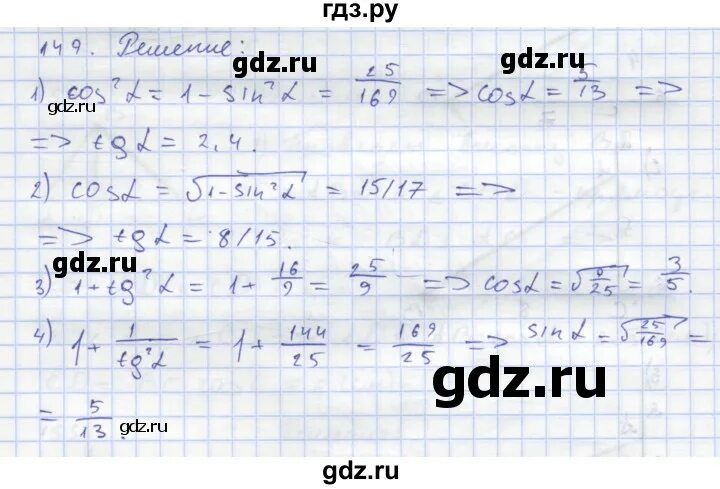 гдз.ру
149. Решение:
gdz.ru
1) cos²α = 1 - sin²α = 25/169 => cosα = 5/13 =>
gdz.ru
=> tgα = 2,4.
2) cosα = √(1-sin²α) = 15/17 =>
=> tgα = 8/15.
gdz.ru
3) 1+tg²α = 1+ 16/9 = 25/9 => cosα = √(9/25) = 3/5.
4) 1+ 1/tg²α = 1+ 144/25 = 169/25 => sinα = √(25/169) =
gdz.ru
= 5/13.
gdz.ru